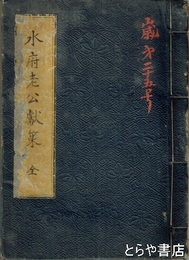 水府老公献策 全
蔵才二十五号
とらや書店